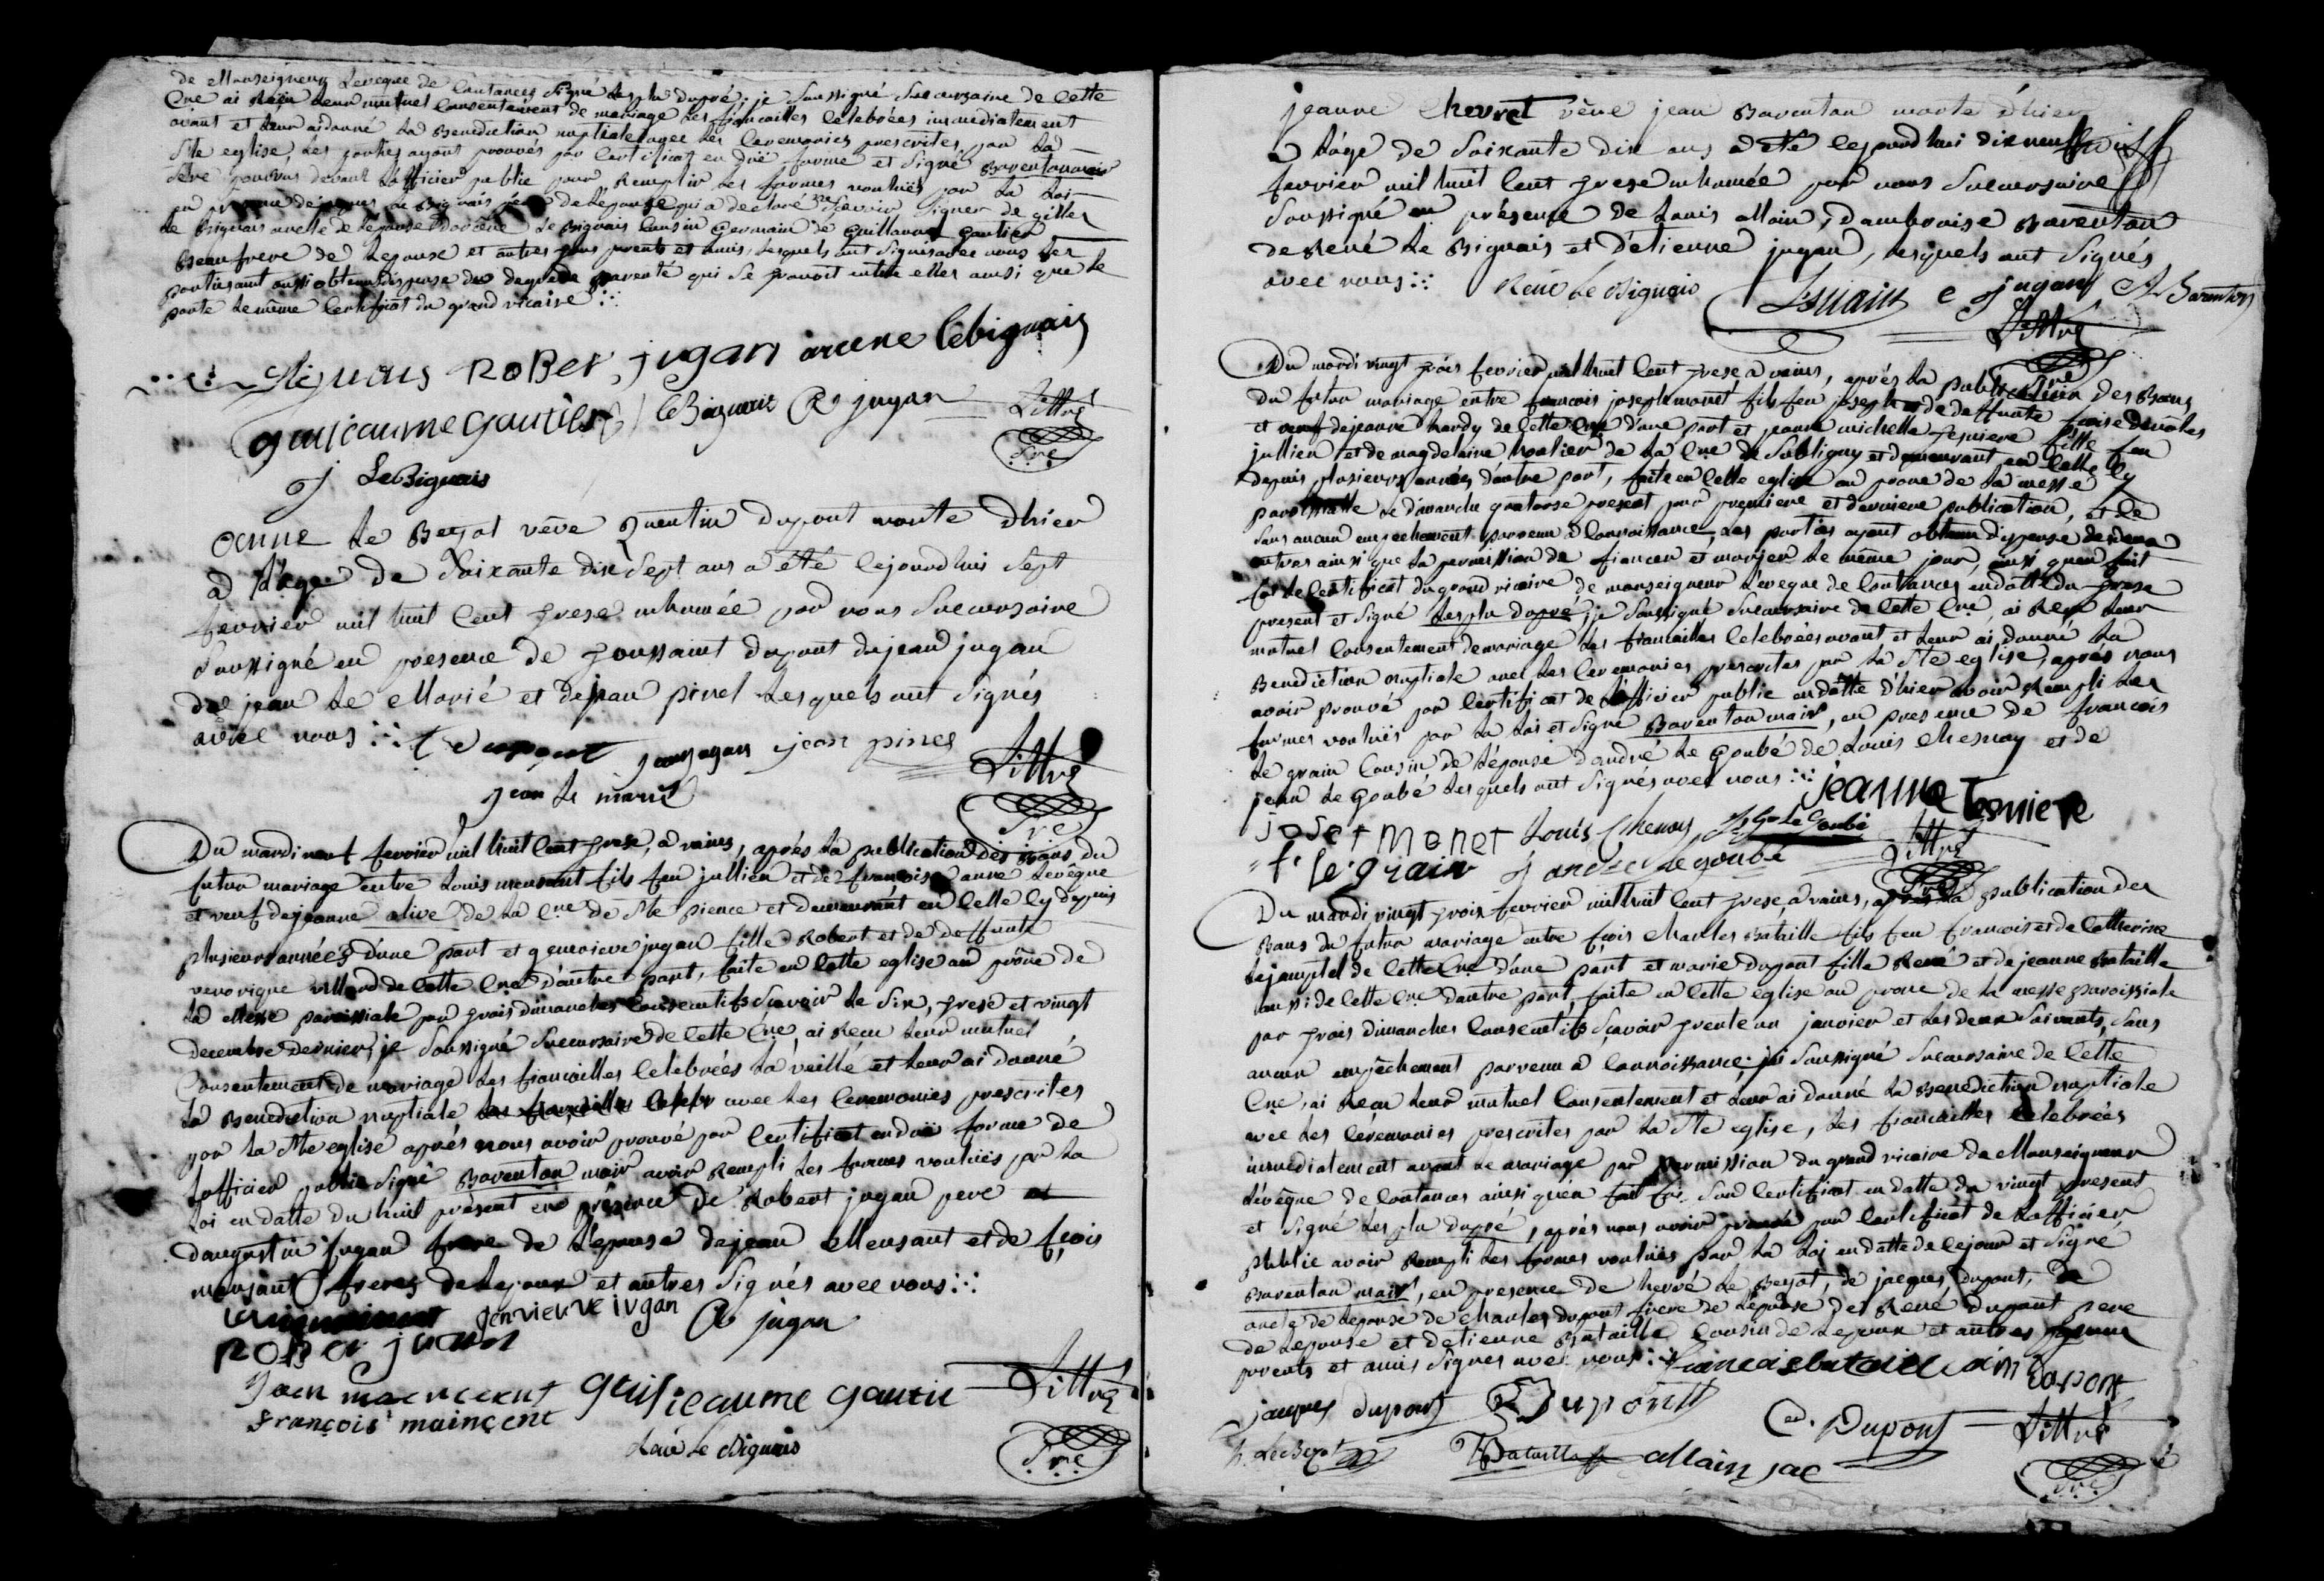 de Monseigneur Leveque de Coutances signé Lesplu dupré. je soussigné Succursaire de cette
Cne ai reçu leur mutuel consentement de mariage les fiançailles celebrées immediatement
avant et leur ai donné la Benediction nuptiale avec les ceremonies prescrites par la
Ste eglise, les parties ayant prouvés par certificat en düe forme et signé Baventon mair
s'etre pourvus devant l'officier public pour remplir les formes voulües par la loi
en presence de le Bignais pere de l'epouse qui a declaré ne sçavoir signer de gilles
le Bignais oncle de l'epouse d'arcene le Bignais cousin Germain de Guillaume Gautier
Beau frere de l'epouse et autres parents et amis, lesquels ont signés avec nous les
parties ont aussi obtenu dispense du degré de parenté qui se trouvoit entre elles ainsi que le
porte le même certificat du grand vicaire
Robert jugan arcene lebignais
guilleaume Gautier le Bignais A jugan Littré
Sre
J LeBignais
Anne le Beyot veve Quentin dupont morte d'hier
a l'age de soixante dix sept ans a été cejourdhui sept
fevrier mil huit cent treze inhumée par nous succursaire
soussigné en presence de Toussaint dupont de jean jugan
de jean le Marié et de jean pinel lesquels ont signés
avec nous t dupont jean jugan jean pinel Littré
jean le marié
Sre
Du mardi neuf fevrier mil huit cent treze, a vains, après la publication des Bans du
futur mariage entre Louis mensant fils feu jullien et de françoise anne Levêque
et veuf de jeanne olive de la Cne de Ste pience et demeurant en cette cy depuis
plusieurs années d'une part et genevieve jugan fille Robert et de deffunte
veronique villard de cette Cne d'autre part, faite en cette eglise au prône de
la Messe paroissiale par trois dimanches consecutifs sçavoir le six, treze et vingt
decembre dernier, je soussigné succursaire de cette Cne, ai reçu leur mutuel
consentement de mariage les fiançailles celebrées la veille et leur ai donné
la Benediction nuptiale les fiançailles celebr avec les ceremonies prescrites
par la Ste eglise après nous avoir prouvé par certificat en düe forme de
l'officier public signé Baventon mair avoir rempli les formes voulües pr la
loi en datte du huit présent en présence de Robert jugan pere et
d'augustin jugan frere de l'epouse de jean Mensant et de fçois
mensant freres de l'epoux et autres signés avec nous
genvieuve jugan A jugan
Rober jugan
Jean maencent guilleaume gautie Littré
François mainçent
Réné le Bignais
Sre
jeanne Chevret veve jean Baventon morte d'hier
a l'age de soixante dix ans a été cejourdhui dix neuf
fevrier mil huit cent treze inhumée par nous succursaire
soussigné en présence de Louis allain, d'ambroise Baventon
de René le Bignais et d'etienne jugan, lesquels ont signés
avec nous René le Bignais L allain e jugan A. Baventon
Littré
Sre
Du mardi vingt trois fevrier mil huit cent treze a vains, après la publication des Bans
du futur mariage entre françois joseph monet fils feu joseph et de deffunte
et veuf de jeanne hardy de cette Cne d'une part et jeanne michelle Tesniere fille feu
jullien et de magdelaine houlier de la Cne de Subligny et demeurant en cette cy
depuis plusieurs années d'autre part, faite en cette eglise au prone de la messe
paroissialle le dimanche quatorse present pour premiere et derniere publication, et ce
sans aucun empechement parvenu a connoissance les parties ayant obtenu dispense des deux
autres ainsi que la permission de fiancer et marier le même jour, ainsi quen fait
foi le certificat du grand vicaire de monseigneur Leveque de Coutances en datte du treze
present et signé Lesplu dupré, je soussigné succursaire de cette Cne, ai reçu leur
mutuel consentement de mariage les fiançailles celebrées avant et leur ai donné la
Benediction nuptiale avec les ceremonies prescrites par la Ste eglise, après nous
avoir prouvé par certificat de l'officier public en datte d'hier avoir rempli les
formes voulües par la loi et signé Baventon mair, en presence de françois
le grain cousin de l'épouse d'andré le Goubé de Louis Chesnay et de
jean le Goubé lesquels ont signés avec nous jeanne Tesniere
joset monet Louis Chenay J Le Goubé
f. le grain andre le goubé Littré
Sre
Du mardi vingt trois fevrier mil huit cent treze, a vains, après la publication des
Bans du futur mariage entre fçois Charles Bataille fils feu françois et de Catherine
lejamptel de cette Cne d'une part et marie dupont fille René et de jeanne Bataille
aussi de cette Cne d'autre part, faite en cette eglise au prone de la messe paroissiale
par trois dimanches consecutifs sçavoir trente un janvier et les deux suivants, sans
aucun empêchement parvenu a connoissance. je soussigné succursaire de cette
Cne, ai reçu leur mutuel consentement et leur ai donné la Benediction nuptiale
avec les ceremonies prescrites par la Ste eglise, les fiançailles celebrées
immediatement avant le mariage par permission du grand vicaire de Monseigneur
Levêque de Coutances ainsi qu'en fait foi son certificat en datte du vingt present
et signé Lesplu dupré, après nous avoir prouvé par certificat de l'officier
public avoir rempli les formes voulües par la loi en datte de ce jour et signé
Baventon mair, en presence de hervé le Beyot, de jacques dupont,
oncle de l'epouse de Charles dupont frere de l'épouse, de René dupont pere
de l'epouse et d'etienne Bataille cousin de l'epoux et autres
parents et amis signés avec nous francoisbataille Dupont
jacques dupont R Dupont C. Dupont Littré
h. Le Beyot Bataille allain jac
Sre